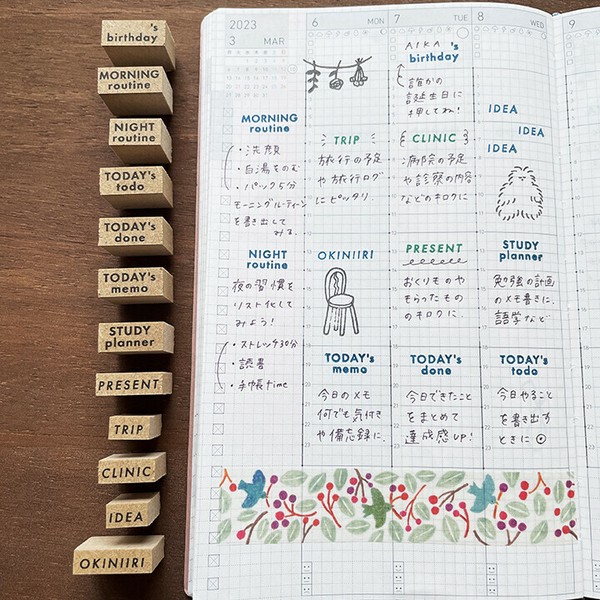 's
birthday
MORNING
routine
NIGHT
routine
TODAY's
todo
TODAY's
done
TODAY's
memo
STUDY
planner
PRESENT
TRIP
CLINIC
IDEA
OKINIIRI
2023
3 MAR
6 MON
7 TUE
8 WED
9
MORNING
routine
・洗顔
・白湯をのむ
・パック5分
モーニングルーティーン
を書き出して
みる。
NIGHT
routine
夜の習慣を
リスト化して
みよう!
・ストレッチ30分
・読書
・手帳time
TRIP
旅行の予定
や旅行ログ
にピッタリ。
OKINIIRI
TODAY's
memo
今日のメモ
何でも気付き
や備忘録に。
AIKA 's
birthday
誰かの
誕生日に
押してね!
CLINIC
病院の予定
や診察の内容
などのキロクに
PRESENT
おくりものや
もらったもの
のキロクに。
TODAY's
done
今日できたこと
をまとめて
達成感UP!
IDEA
IDEA
IDEA
STUDY
planner
勉強の計画
のメモ書きに。
語学など
TODAY's
todo
今日やること
を書き出す
ときに